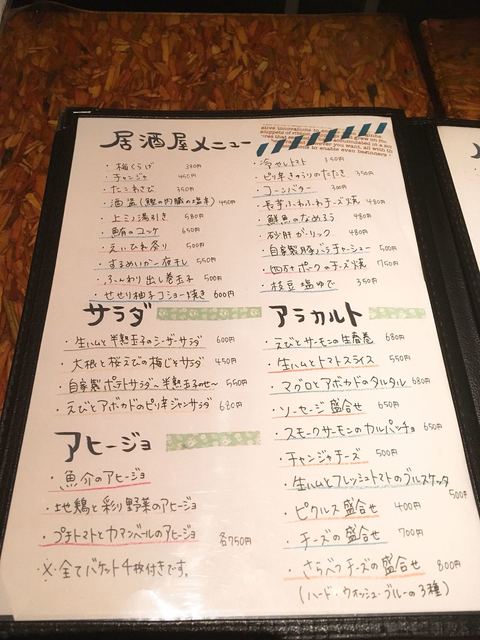 居酒屋メニュー
・梅くらげ 380円
・チャンジャ 450円
・たこわさび 350円
・酒盗(鰹の内臓の塩辛) 450円
・上ミノ湯引き 580円
・鮪のユッケ 650円
・えいひれ炙り 500円
・するめいか一夜干し 550円
・ふんわり出し巻玉子 500円
・せせり柚子コショー焼き 600円
・冷やしトマト 350円
・ピリ辛きゅうりのたたき 350円
・コーンバター 300円
・長芋ふわふわチーズ焼 480円
・鮮魚のなめろう 480円
・砂肝ガーリック 480円
・自家製豚バラチャーシュー 500円
・四万十ポークのチーズ焼 750円
・枝豆塩ゆで 350円
サラダ
・生ハムと半熟玉子のシーザーサラダ 600円
・大根と桜えびの梅じそサラダ 450円
・自家製ポテトサラダ、半熟玉子のせ〜 550円
・えびとアボカドのピリ辛ジャンサラダ 680円
アヒージョ
・魚介のアヒージョ
・地鶏と彩り野菜のアヒージョ
・プチトマトとカマンベールのアヒージョ 各750円
・※全てバケット4枚付きです。
アラカルト
・えびとサーモンの生春巻 680円
・生ハムとトマトスライス 550円
・マグロとアボカドのタルタル 680円
・ソーセージ盛合せ 650円
・スモークサーモンのカルパッチョ 650円
・チャンジャチーズ 500円
・生ハムとフレッシュトマトのブルスケッタ 500円
・ピクルス盛合せ 400円
・チーズの盛合せ 700円
・さらべつチーズの盛合せ 800円
(ハード・ウォッシュ・ブルーの3種)